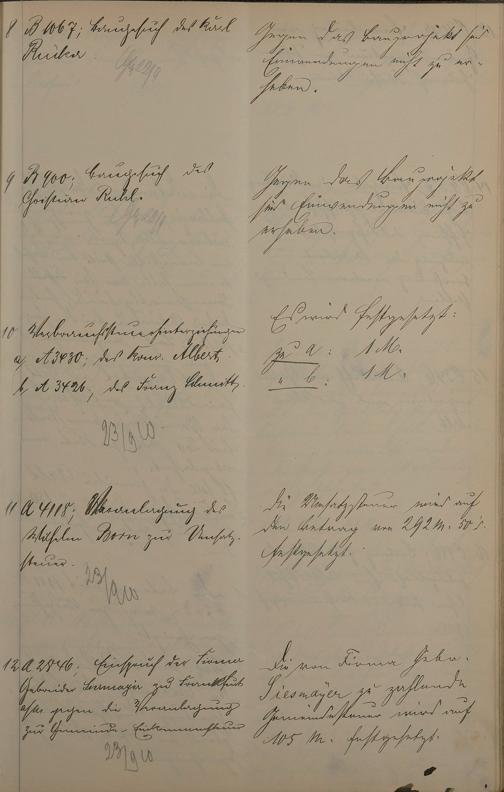 8 B 1067; Baugesuch des Karl
Gegen das Bauprojekt sind
Einwendungen nicht zu er-
heben.
9 B 900; Baugesuch des
Christian Ruhl.
Gegen das Bauprojekt
sind Einwendungen nicht zu
erheben.
10 Verbrauchssteuerhinterziehungen
a, A 3430; des Konr. Albert,
b, A 3426, des Franz Schmitt,
23/9 10
Es wird festgesetzt:
zu a: 1 M.
" b: 1 M.
11 A 4118; Veranlagung des
Wilhelm Born zur Umsatz-
steuer.
23/9 10
Die Umsatzsteuer wird auf
den Betrag von 292 M. 50 S.
festgesetzt.
12 A 2846; Einspruch der Firma
Gebrüder Siesmayer zu Frankfurt
a/M. gegen die Veranlagung
zur Gemeinde-Einkommensteuer
23/9 10
Die von Firma Gebr.
Siesmayer zu zahlende
Gemeindesteuer wird auf
105 M. festgesetzt.